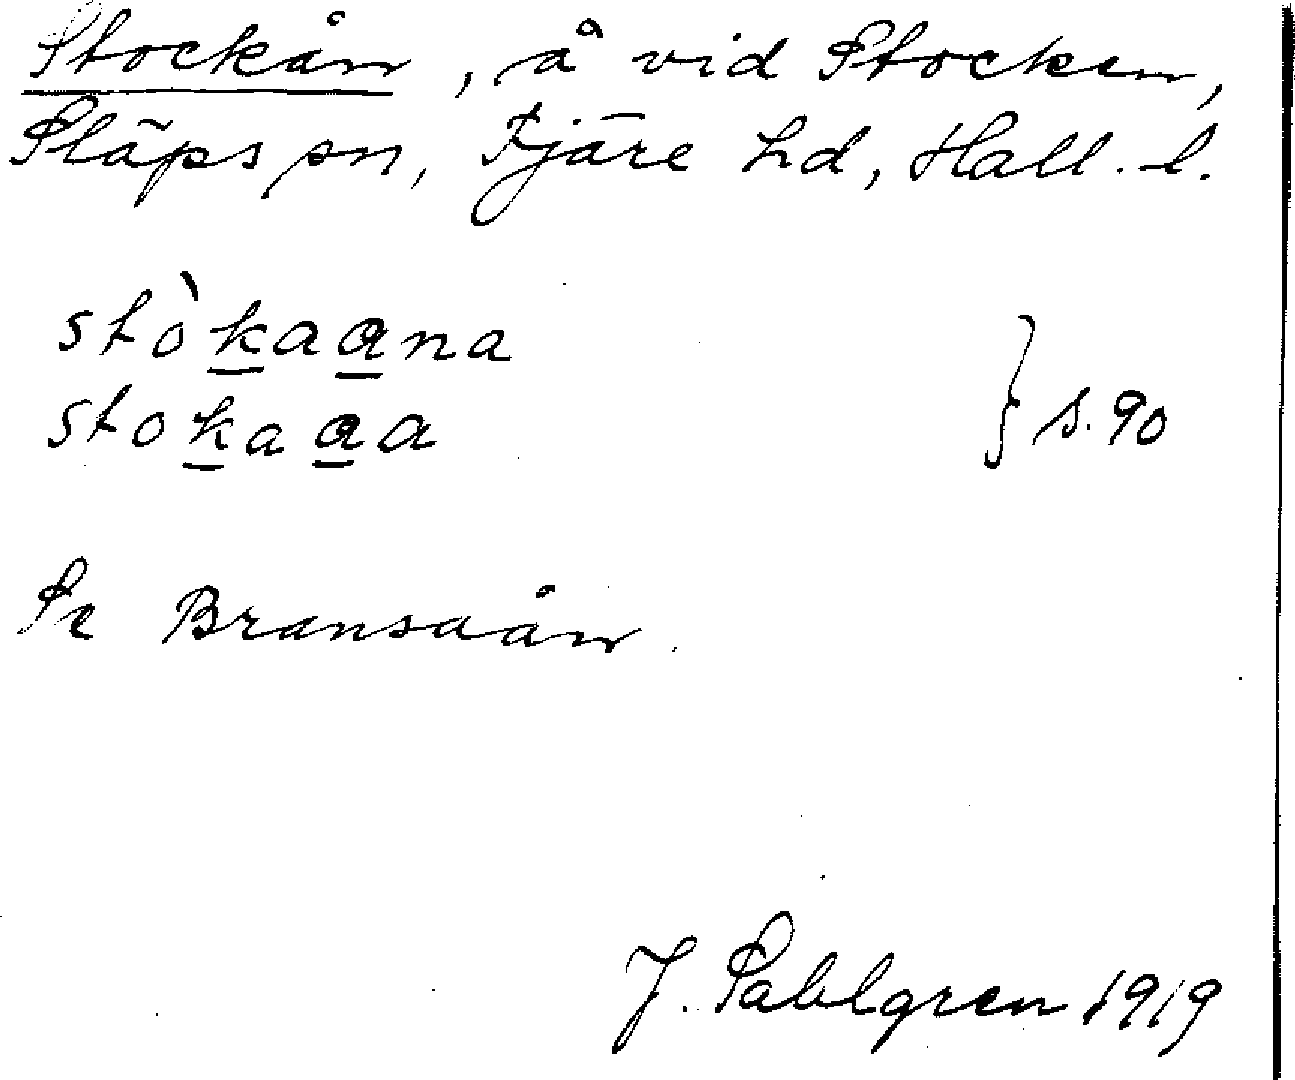 Stockån, å vid Stocken,
Släps sn, Fjäre hd, Hall. l.
stòkaana
stokaaa
} s. 90
Se Bransaån.
J. Sahlgren 1919